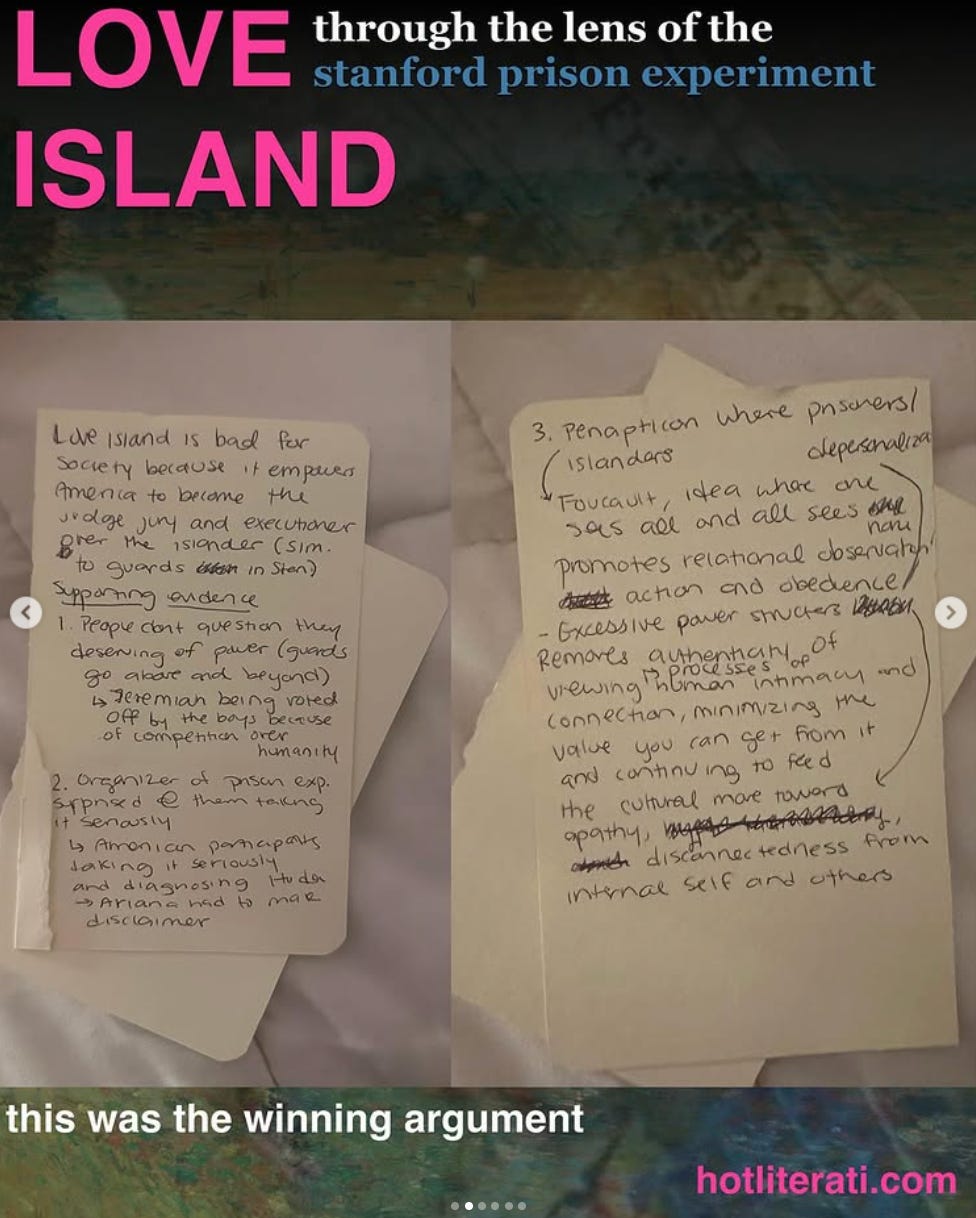 LOVE
ISLAND
through the lens of the
stanford prison experiment
Love island is bad for
society because it empowers
America to become the
judge jury and executioner
over the islander (sim.
to guards in Stan)
Supporting evidence
1. People dont question they
deserving of power (guards
go above and beyond)
↳ Jeremiah being voted
off by the boys because
of competition over
humanity
2. Organizer of prison exp.
surprised @ them taking
it seriously
↳ American participants
taking it seriously
and diagnosing Huda
→ Ariana had to make
disclaimer
3. Penapticon where prisoners/
islanders depersonaliza
Foucault, idea where one
sees all and all sees
none
promotes relational observation
action and obedience
- Excessive power structers
Removes authenticity of
viewing processes of
human intimacy and
connection, minimizing the
value you can get from it
and continuing to feed
the cultural move toward
apathy,
disconnectedness from
internal self and others
this was the winning argument
hotliterati.com